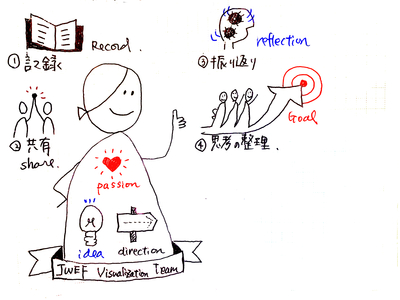 Record.
①記録
②共有
share.
③振り返り
reflection
Goal
④思考の整理.
passion
idea
direction
JWEF Visualization Team